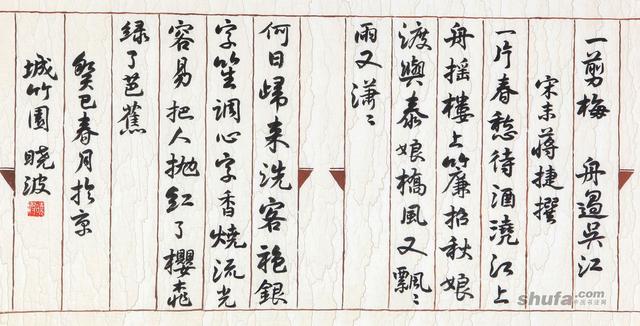 一剪梅 舟過吳江
宋末蔣捷撰
一片春愁待酒澆江上
舟搖樓上簾招秋娘
渡與泰娘橋風又飄々
雨又瀟々
何日歸来洗客袍銀
字笙調心字香燒流光
容易把人抛紅了櫻桃
緑了芭蕉
癸巳春月於京
城竹園 曉波
shufa.com
中国书法网